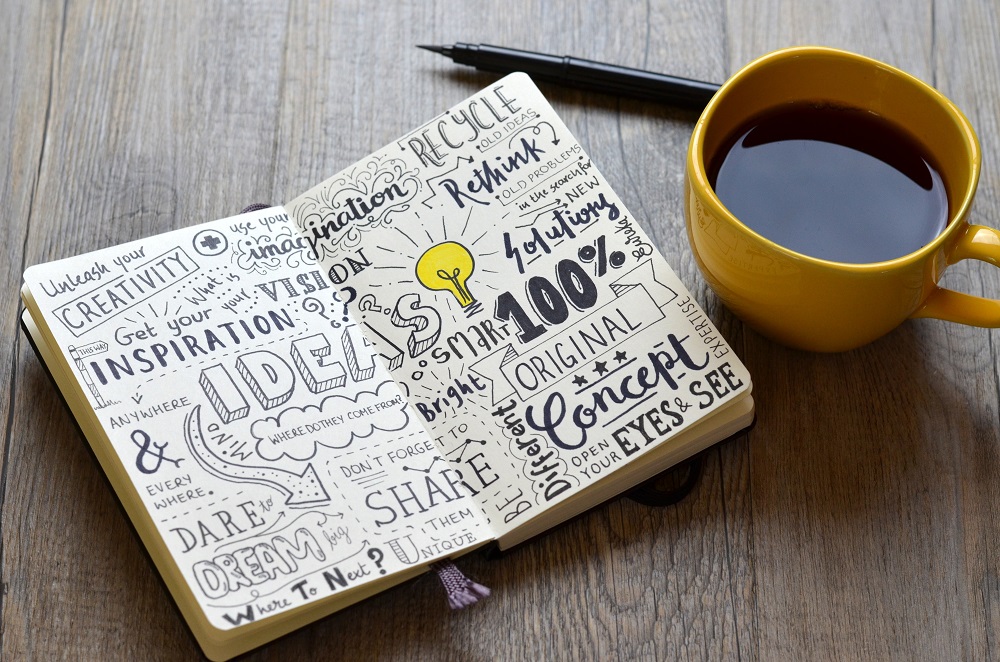 Unleash your
CREATIVITY
use your
imagination
What's your
VISION
?
Get your
INSPIRATION
THIS WAY
IDEAS
ANYWHERE
&
EVERY
WHERE.
MIND
WHERE DO THEY COME FROM?
DON'T FORGET TO
SHARE
THEM
UNIQUE
DARE to
DREAM big
Where To Next?
RECYCLE
OLD IDEAS
Rethink
OLD PROBLEMS
in the search for
NEW
Solutions
100%
SMART
Bright
ORIGINAL
Concept
EXPERTISE
BE
Different
OPEN
YOUR
EYES & SEE